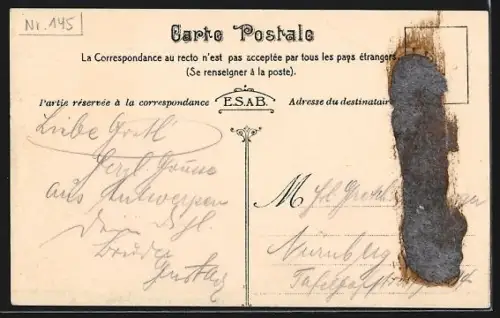 Nr. 145
Carte Postale
La Correspondance au recto n'est pas acceptée par tous les pays étrangers
(Se renseigner à la poste).
Partie réservée à la correspondance
E.S.A.B.
Adresse du destinatair
Liebe Gretl
Herzl. Grüsse
aus Antwerpen
Dein
Bruder
Gustav
M
Nürnberg